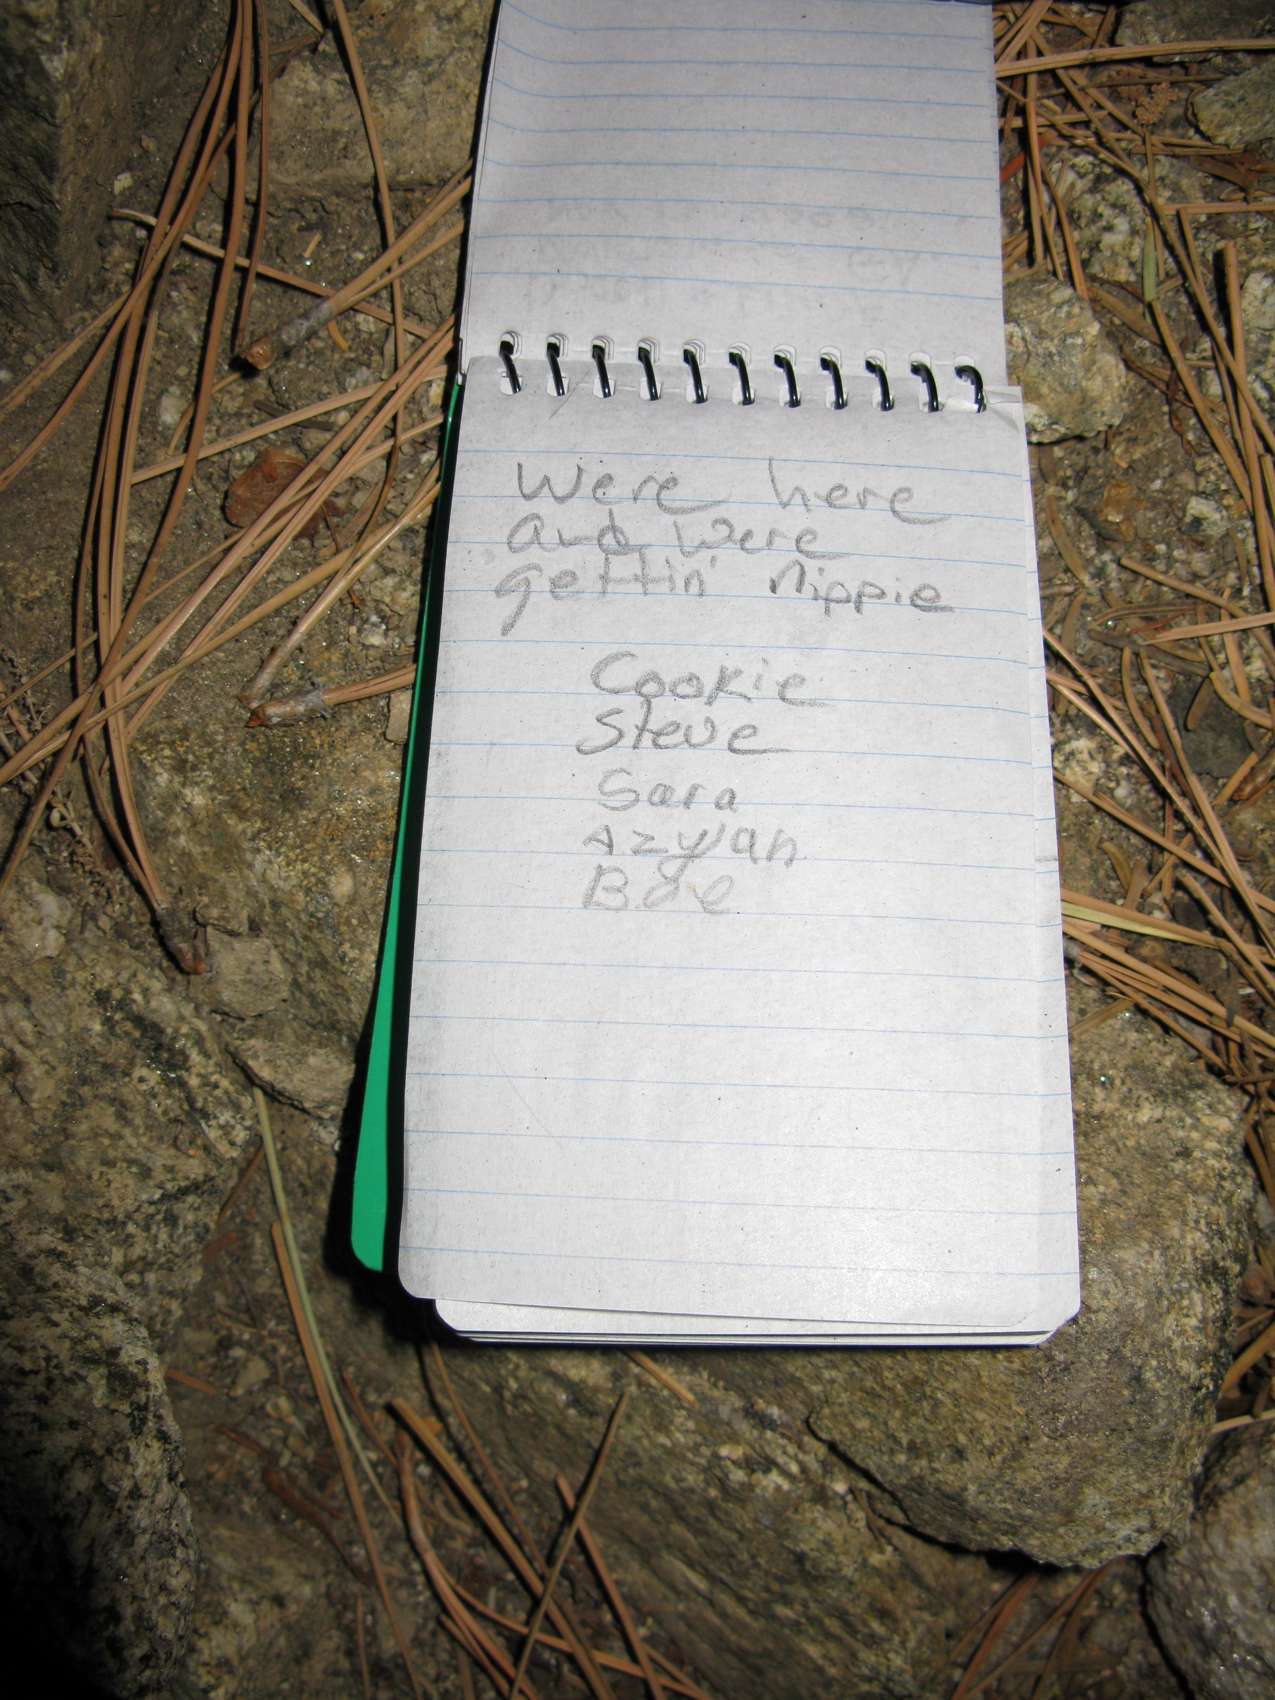 Were here
and were
gettin' nippie
Cookie
Steve
Sara
Azylan
Boe